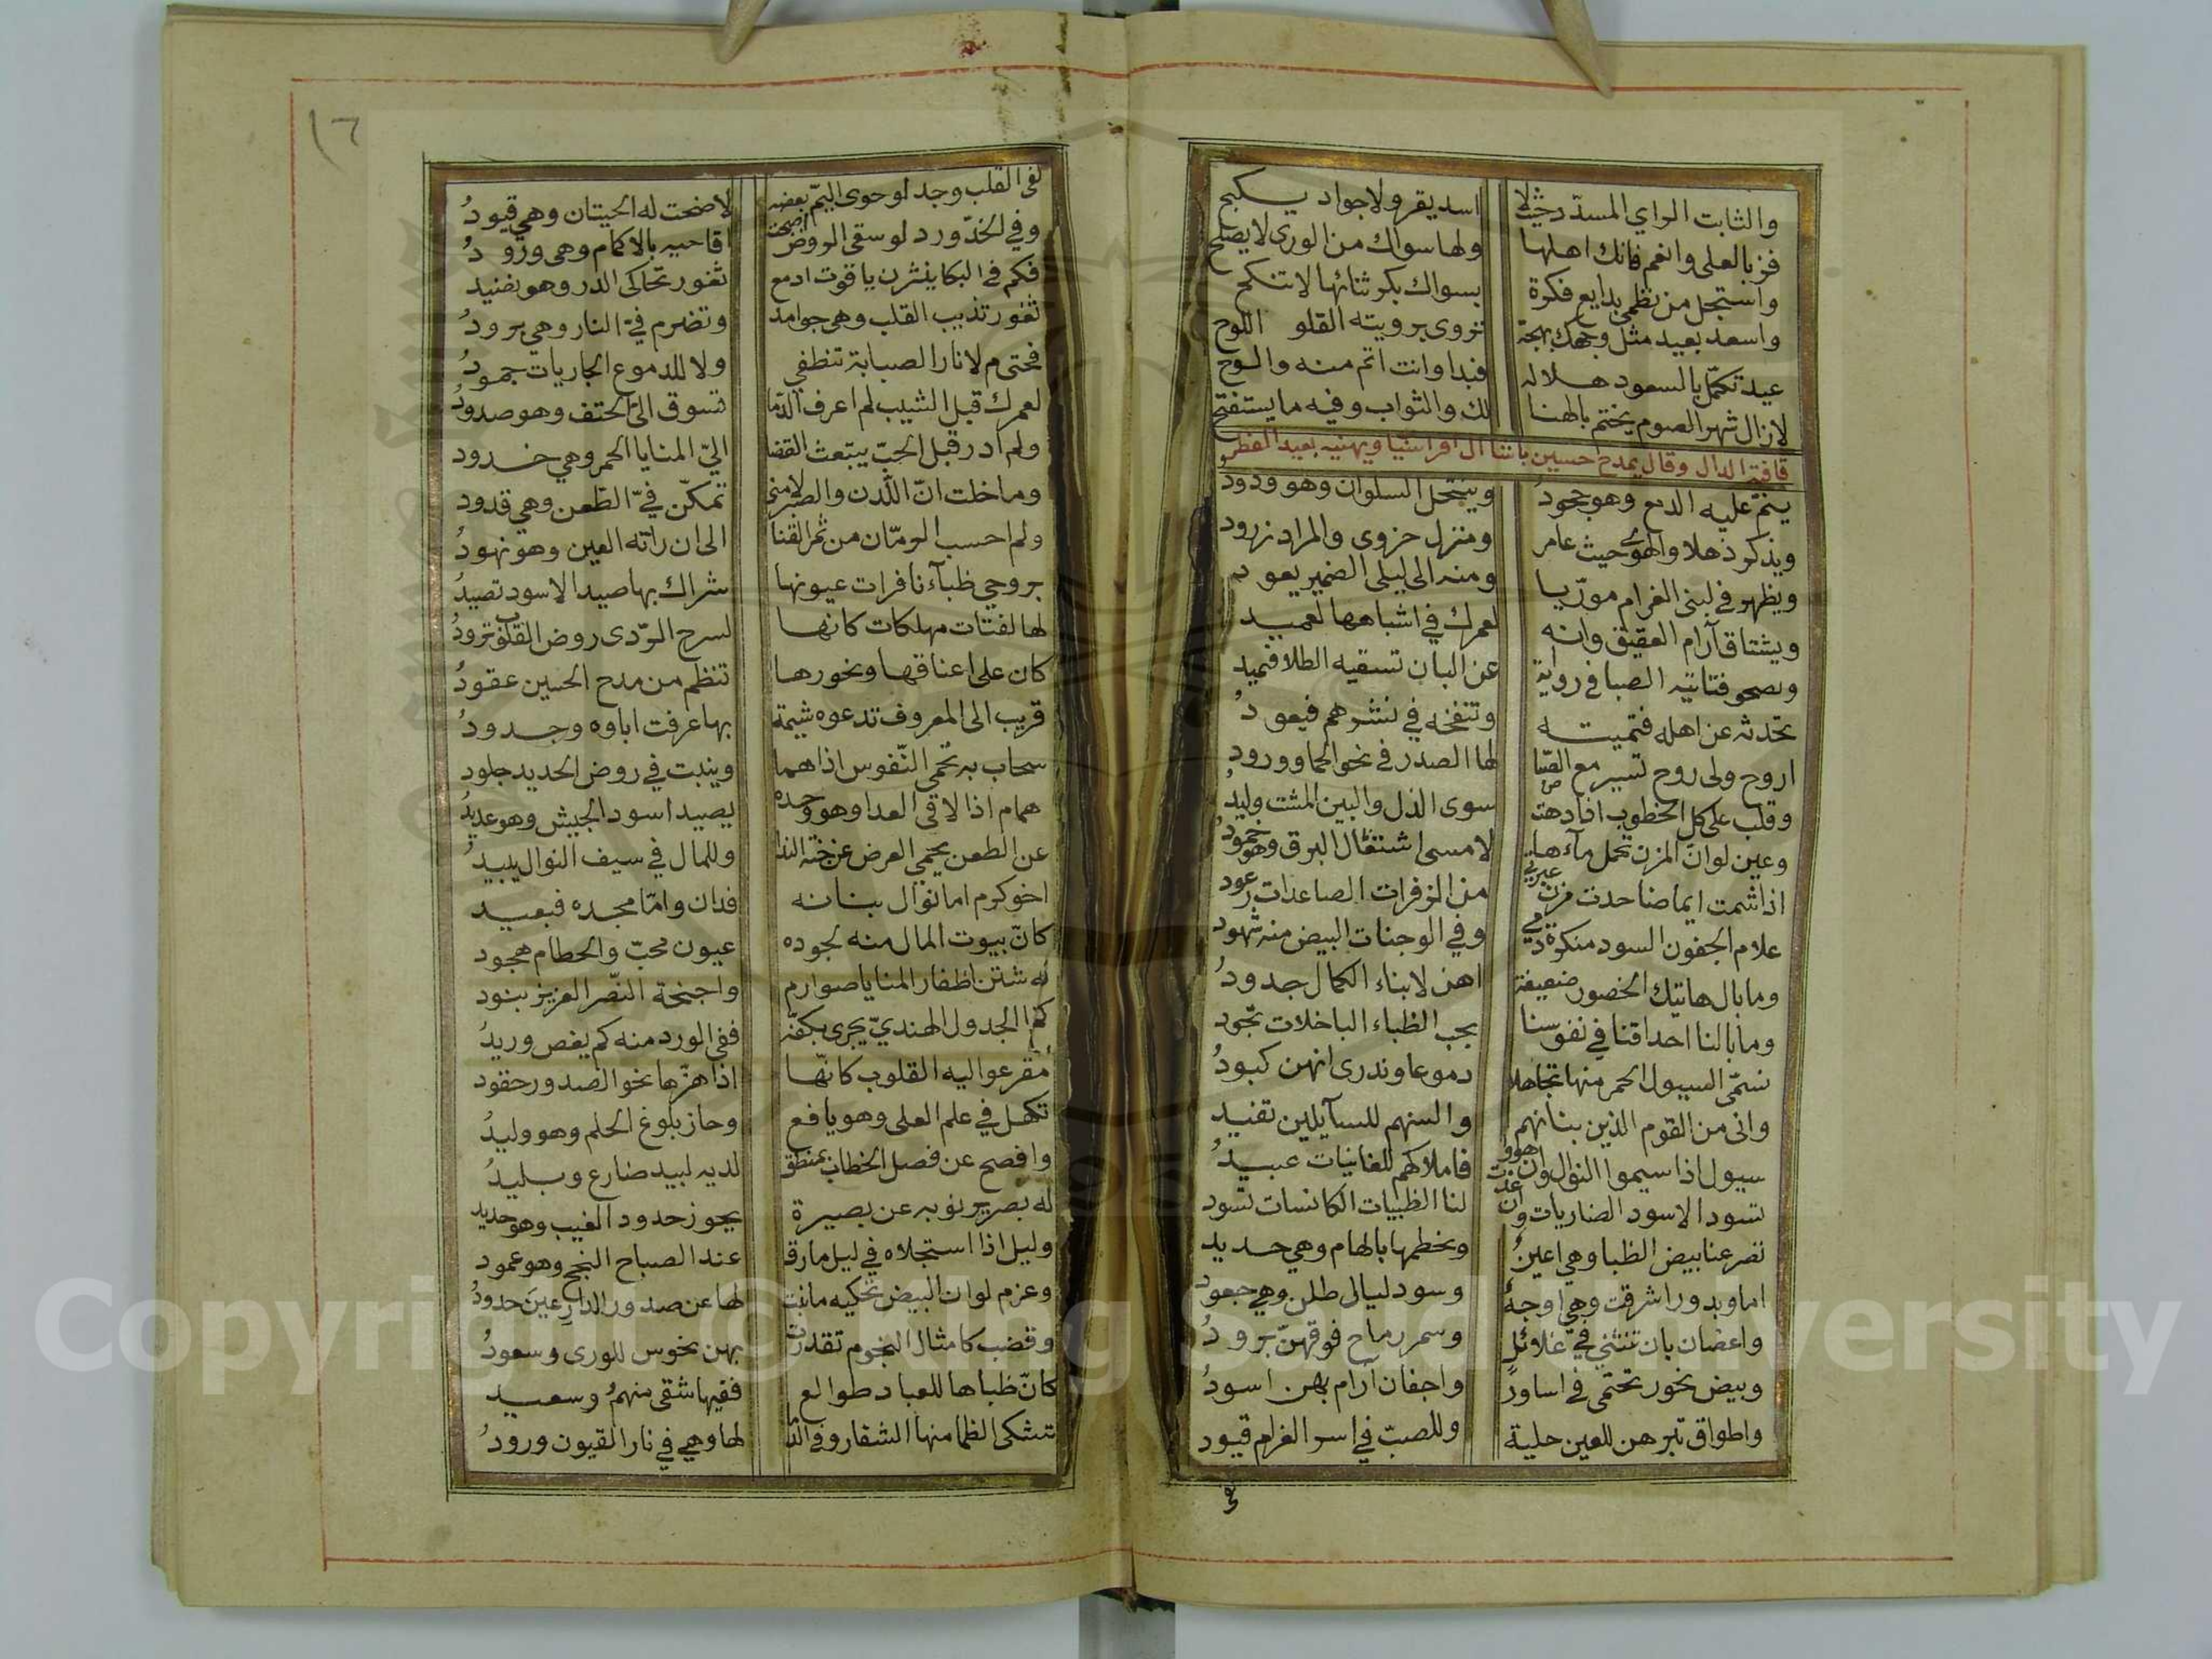 والثابت الراي المسدد حيث لا اسد يقر ولا جواد يسكبح
فز بالعلى وانعم فانك اهلها ولها سواك من الورى لا يصلح
واستجل من نظمي بدايع فكرة بسواك بكر ثنائها لا تنكح
واسعد بعيد مثل وجهك بهجة تروى برويته القلو اللوح
عيد تكمل بالسعود هلاله فبدا وانت اتم منه والوح
لازال شهر الصوم يختم بالهنا لك والثواب وفيه ما يستفتح
قافية الدال وقال يمدح حسين باشا ال افراسيا ويهنيه بعيد الفطر
ينم عليه الدمع وهو جحود وينتحل السلوان وهو ودود
ويذكر ذهلا والهوى حيث عامر ومنزل حزوى والمراد زرود
ويظهر في لبنى الغرام موريا ومنه الى ليلى الضمير يعود
ويشتاق آرام العقيق وانه لعمرك في اشباهها لعميد
ويصحو فتاتيه الصبا في رواية عن البان تسقيه الطلا فيميد
تحدثه عن اهله فتميته وتنفخه في نشرهم فيعود
اروح ولى روح تسير مع الصبا لها الصدر في نحو الحما وورود
وقلب على كل الخطوب اذا دهت سوى الذل والبين المشت وليد
وعين لو ان المزن تحمل ماءها لامسى اشتعال البرق وهو خمود
اذا شمت ايماضا حدت مزن عبرتي من الزفرات الصاعدات رعود
علام الجفون السود منكرة دمي وفي الوجنات البيض منه شهود
وما بال هاتيك الخصور ضعيفة اهن لابناء الكمال جدود
وما بالنا احداقنا في نفوسنا بحب الظباء الباخلات تجود
نسمى السيول الحمر منها تجاهلا دموعا وندرى انهن كبود
وانى من القوم الذين بنانهم والسنهم للسآيلين تفيد
سيول اذا سيموا النوال وان هووا فاملاكهم للغانيات عبيد
تسود الاسود الضاريات وان غدت لنا الظبيات الكانسات تسود
تضرعنا بيض الظبا وهي اعين ونحطمها بالهام وهي حديد
اما وبدور اشرقت وهي اوجه وسود ليالى طلن وهي جعود
واغصان بان تنثني في غلائل وسمر رماح فوقهن برود
وبيض نحور تحتمى في اساور واجفان آرام بهن اسود
واطواق تبر هن للعين حلية وللصب في اسر الغرام قيود
١٦
لفى القلب وجد لو حوى اليم بعضه لاضحت له الحيتان وهي قيود
وفي الخد ورد لو سقى الروض اصبحت اقاحيه بالاكمام وهى ورود
فكم في البكا ينثرن ياقوت ادمع ثغور تحاكى الدر وهو نضيد
ثغور تذيب القلب وهي جوامد وتضرم في النار وهي برود
فحتى م لا نار الصبابة تنطفي ولا للدموع الجاريات جمود
لعمرك قبل الشيب لم اعرف الدما تسوق الي الحتف وهو صدود
ولم ادر قبل الحب يبتعث القضا الي المنايا الحمر وهي خدود
وما خلت ان اللدن والصبر لامتي تمكن في الطعن وهي قدود
ولم احسب الرمان من ثمر القنا الى ان راته العين وهو نهود
بروحي ظباء نافرات عيونها شراك بها صيد الاسود تصيد
لها لفتات مهلكات كانها لسرح الردى روض القلوب ترود
كان على اعناقها ونحورها تنظم من مدح الحسين عقود
قريب الى المعروف تدعوه شيمة بها عرفت اباوه وجدود
سحاب به تحمى النفوس اذا هما وينبت في روض الحديد جلود
همام اذا لاقى العدا وهو وحده يصيد اسود الجيش وهو عديد
عن الطعن يحمي العرض عن جنة الندا وللمال في سيف النوال يبيد
اخو كرم اما نوال بنانه فدان واما مجده فبعيد
كان بيوت المال منه لجوده عيون محب والحطام هجود
له شتن اظفار المنايا صوارم واجنحة النصر العزيز بنود
كم الجدول الهندي يجرى بكفه ففى الورد منه كم يغص وريد
مقرعو اليه القلوب كانها اذا هزها نحو الصدور حقود
تكهل في علم العلى وهو يافع وحاز بلوغ الحلم وهو وليد
وافصح عن فصل الخطاب بمنطق لديه لبيد ضارع وبليد
له بصر يرنو به عن بصيرة يجوز حدود الغيب وهو حديد
وليل اذا استجلاه في ليل مارق عند الصباح النجح وهو عمود
وعزم لو ان البيض تحكيه ما نبت لها عن صدور الدارعين حدود
وقضب كامثال النجوم تقدرت بهن نحوس للورى وسعود
كان ظباها للعباد طوالع ففيها شقى منهم وسعيد
تشكى الظما منها الشفار وفى لها وهي في نار القيون ورود
Copyright © King Saud University